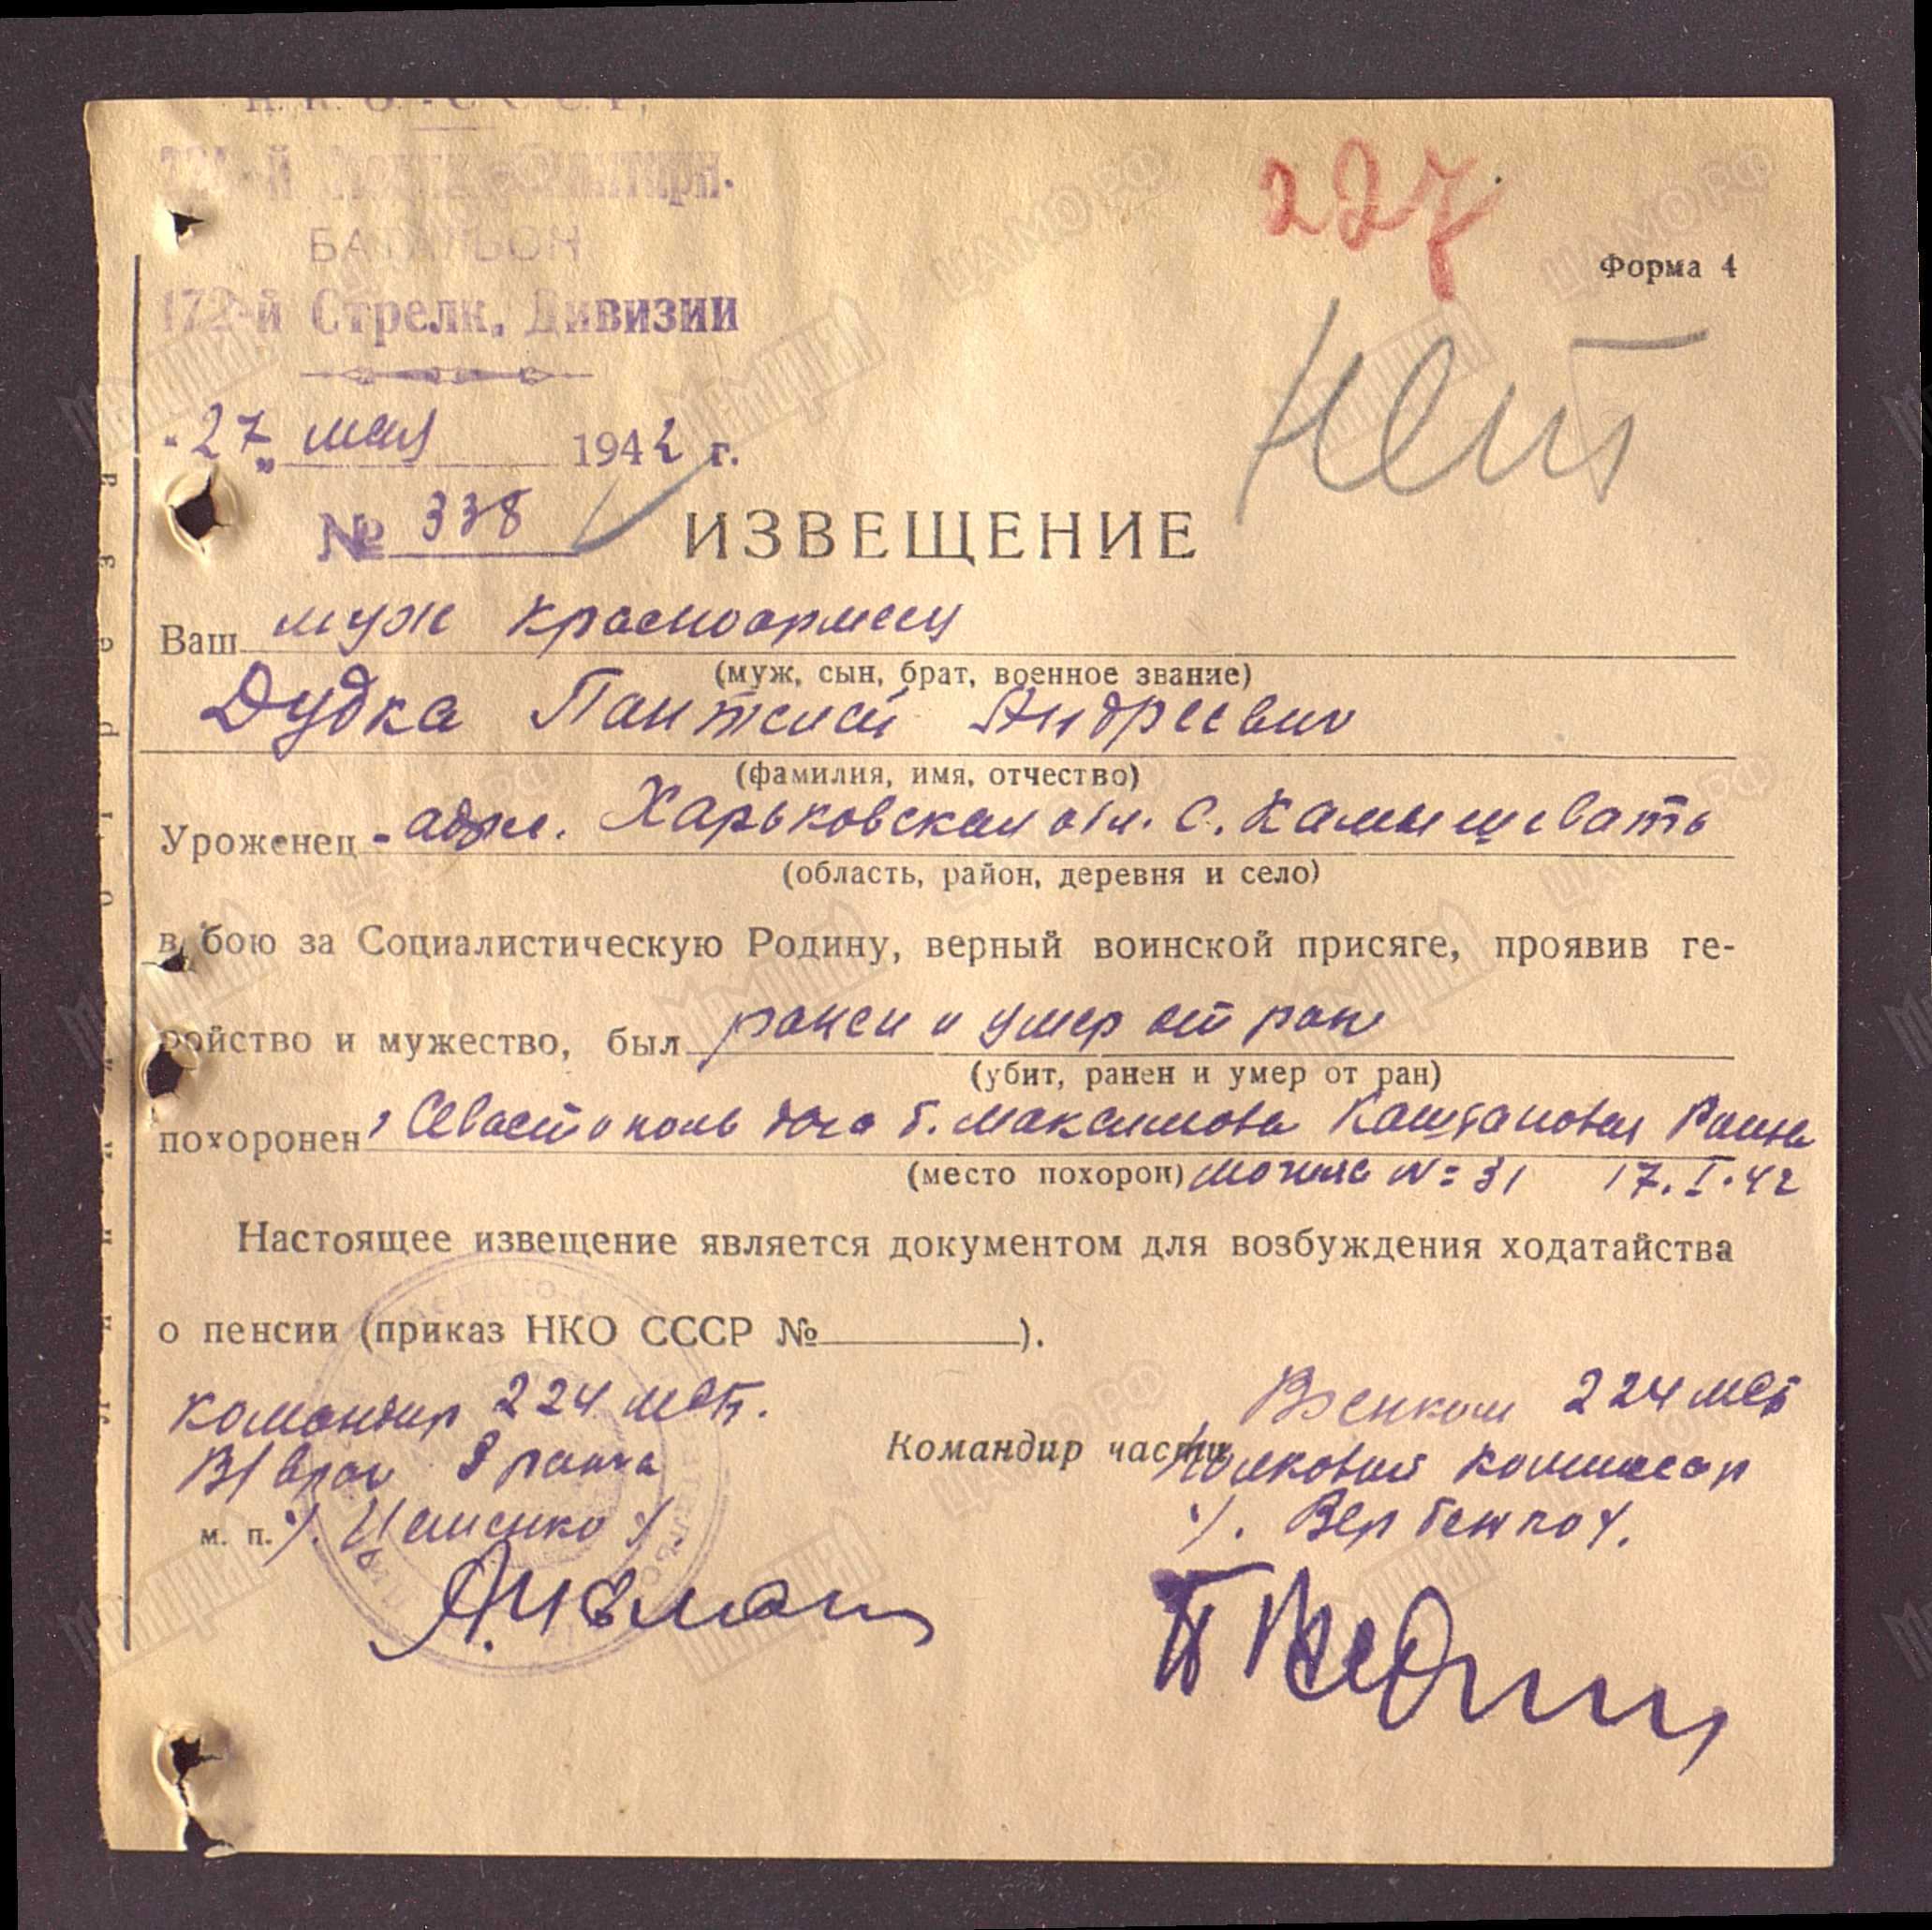 Н. К. О. - С. С. С. Р.
227
БАТАЛЬОН
Форма 4
172-й Стрелк. Дивизии
"27" мая 1942 г.
нет
№ 338
ИЗВЕЩЕНИЕ
Ваш муж красноармеец
(муж, сын, брат, военное звание)
Дудка Пантелей Андреевич
(фамилия, имя, отчество)
Уроженец - адрес. Харьковская обл. с. Камышевать
(область, район, деревня и село)
в бою за Социалистическую Родину, верный воинской присяге, проявив ге-
ройство и мужество, был ранен и умер от ран
(убит, ранен и умер от ран)
похоронен г Севастополь дача б. Максимова Каштановая
(место похорон) могила №31 17.I.42
Настоящее извещение является документом для возбуждения ходатайства
о пенсии (приказ НКО СССР № ).
командир 224 мсб.
Военком 224 мсб
В/врач ранга
Командир части
Полковой комиссар
м. п.
отреза